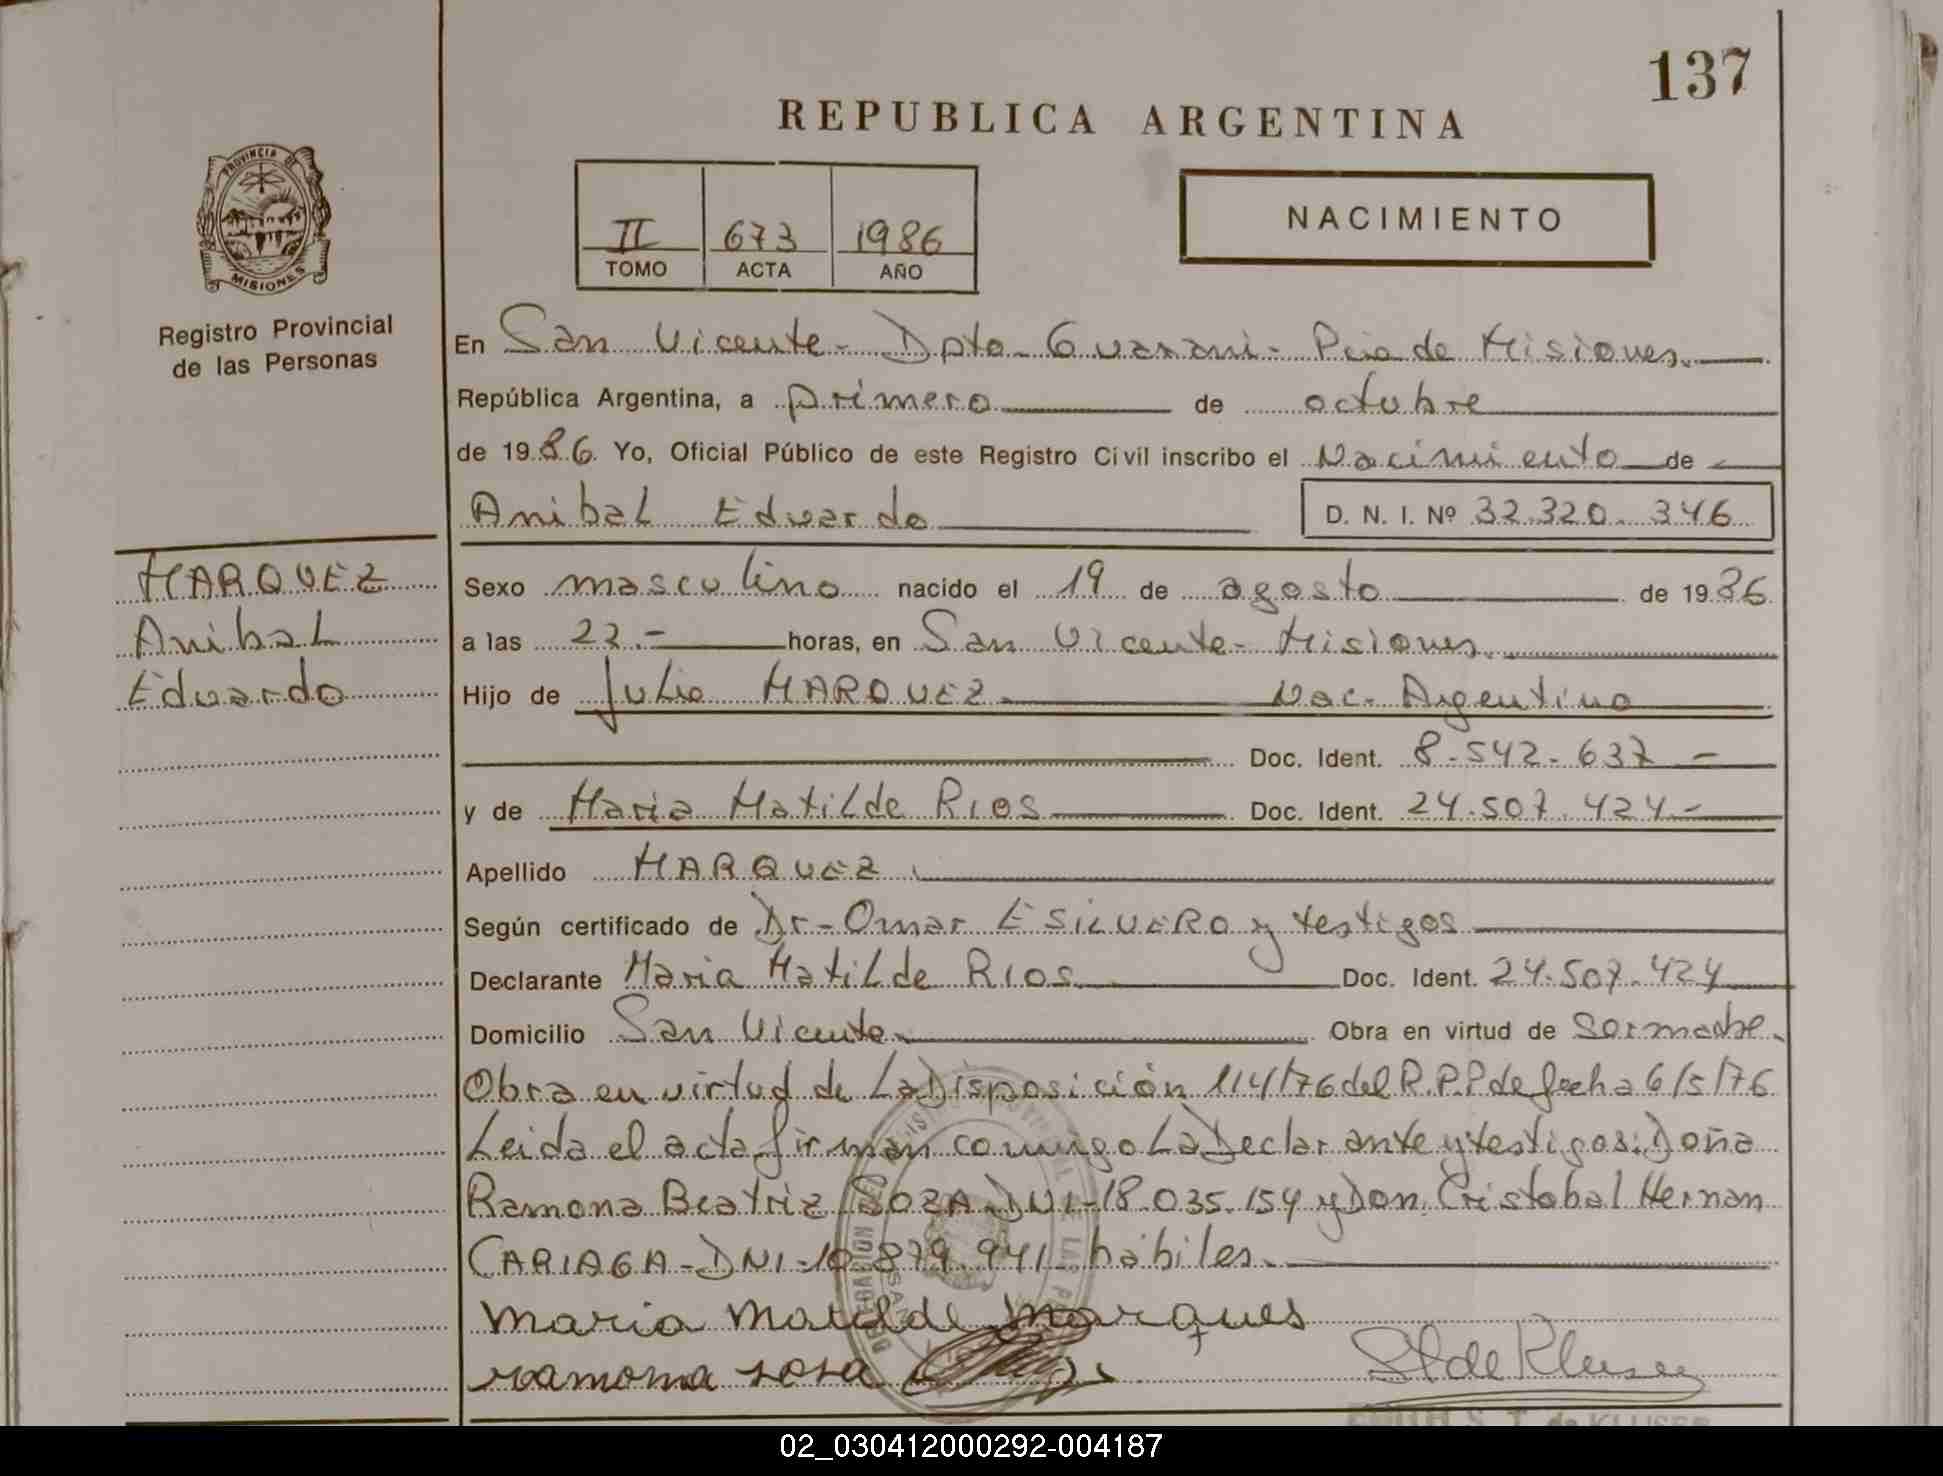 137
REPUBLICA ARGENTINA
PROVINCIA DE
MISIONES
II 673 1986
TOMO ACTA AÑO
NACIMIENTO
Registro Provincial
de las Personas
En San Vicente - Dpto - Guarani - Pcia de Misiones.
República Argentina, a primero de octubre
de 1986 Yo, Oficial Público de este Registro Civil inscribo el Nacimiento de
Anibal Eduardo D. N. I. Nº 32.320.346
MARQUEZ
Anibal
Eduardo
Sexo masculino nacido el 19 de agosto de 1986
a las 22.- horas, en San Vicente - Misiones.
Hijo de Julio MARQUEZ. Nac. Argentino
Doc. Ident. 8.542.637 -
y de Maria Matilde RIOS Doc. Ident. 24.507.424.-
Apellido MARQUEZ.
Según certificado de Dr - Omar ESILVERO y testigos
Declarante Maria Matilde RIOS Doc. Ident. 24.507.424
Domicilio San Vicente. Obra en virtud de ser madre.
Obra en virtud de La Disposición 114/76 del R.P.P de fecha 6/5/76
Leida el acta firman conmigo La Declarante y testigos: Doña
Ramona Beatriz SOZA - DNI - 18.035.154 y Don Cristobal Hernan
CARIAGA - DNI - 10.879.941 hábiles.
Maria Matilde Marques
ramona sosa
02_030412000292-004187